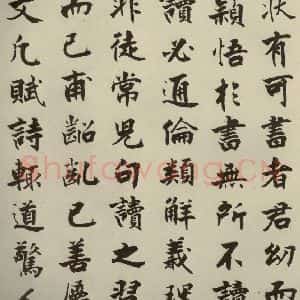 状有可書者君幼而
穎悟於書無所不讀
讀必通倫類解義理
非徒常兒句讀之習
而已甫齠亂已善属
文凡賦詩輒道驚人
Shufawang.Cn